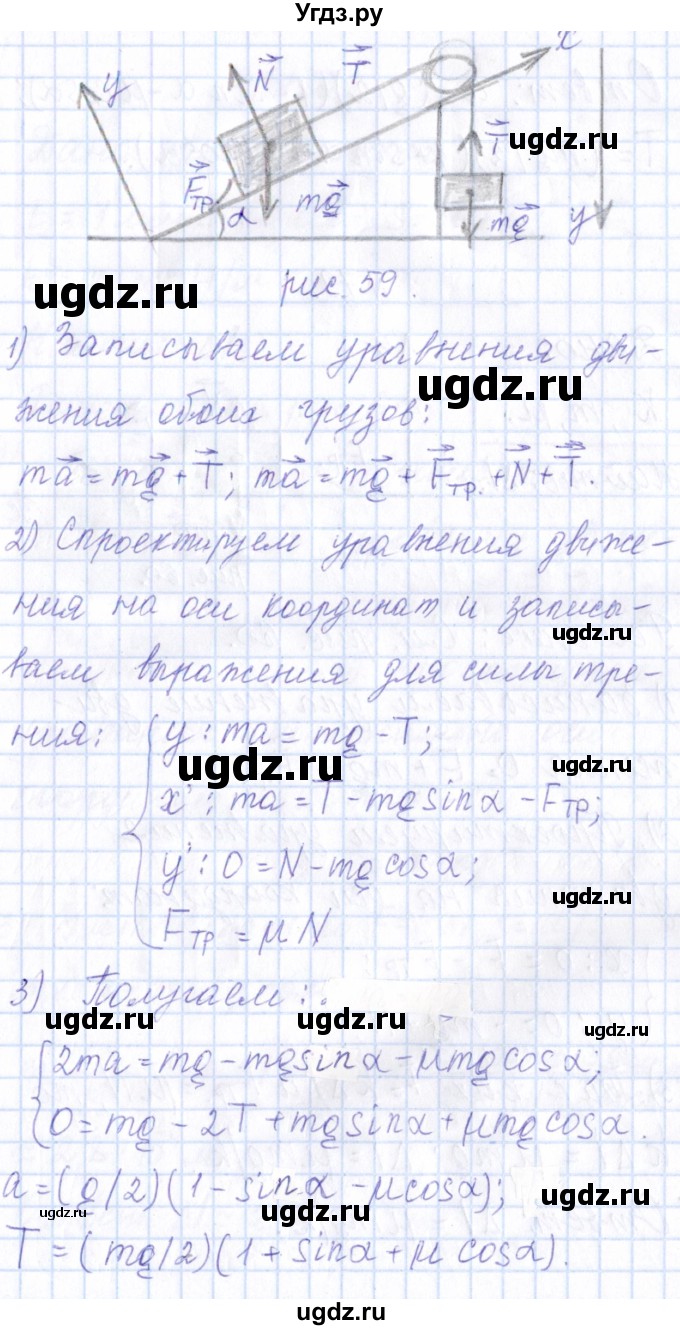 Угдз.ру
y N T x
ugdz.ru
Fтр α mg T mg y
ugdz.ru рис. 59.
1) Записываем уравнения дви-
ugdz.ru
жения обоих грузов:
ma = mg + T; ma = mg + Fтр. + N + T.
2) Спроектируем уравнения движе-
ния на оси координат и записы-
ugdz.ru
ваем выражения для силы тре-
ния: { y: ma = mg - T;
ugdz.ru ugdz.ru
x': ma = T - mg sinα - Fтр;
y': 0 = N - mg cosα;
ugdz.ru
Fтр = μN
3) Получаем:
ugdz.ru ugdz.ru ugdz.ru
{ 2ma = mg - mg sinα - μmg cosα;
0 = mg - 2T + mg sinα + μmg cosα.
a = (g/2)(1 - sinα - μcosα);
ugdz.ru ugdz.ru ugdz.ru
T = (mg/2)(1 + sinα + μ cosα).
ugdz.ru